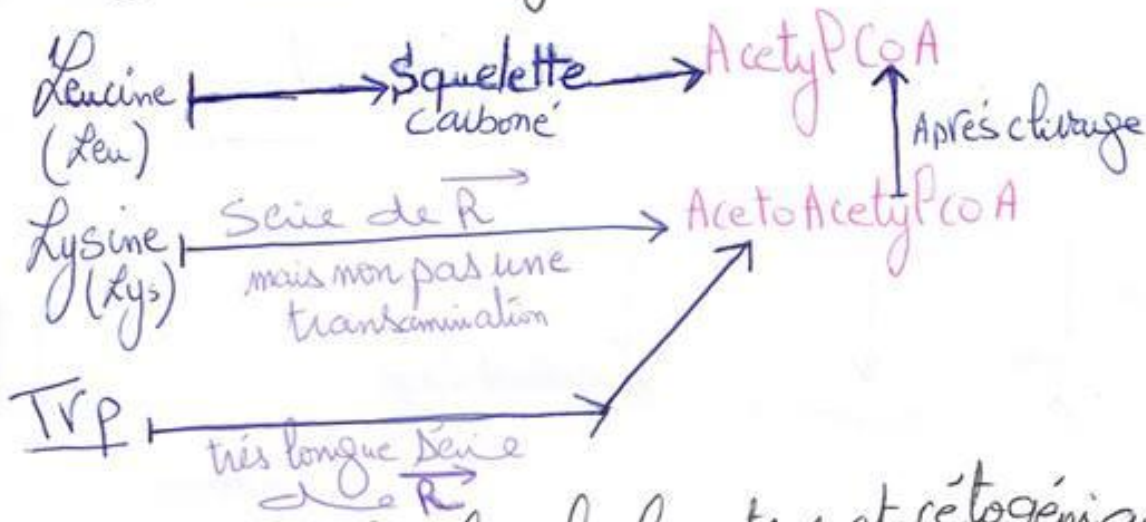 Leucine
(Leu)
Squelette
carboné
AcetylCoA
Aprés clivage
Lysine
(Lys)
Serie de R
mais non pas une
transamination
AcetoAcetylcoA
Trp
trés longue Serie
de R
et cétogéni